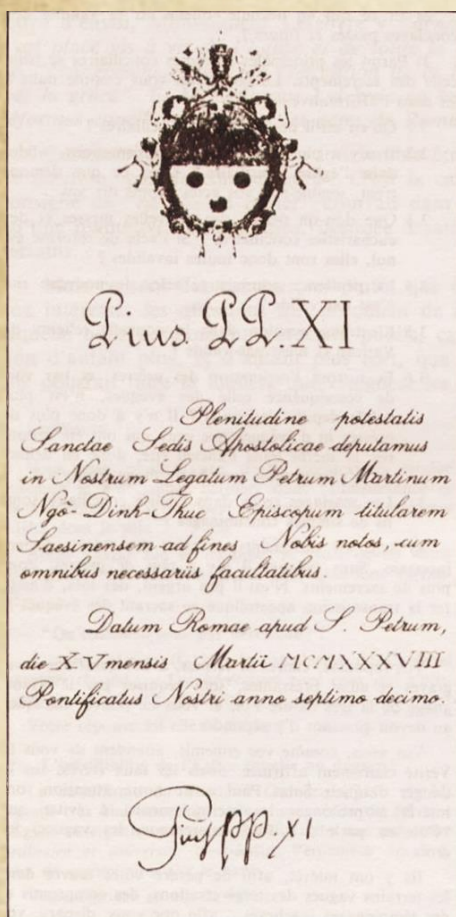 Pius PP. XI
Plenitudine potestatis
Sanctae Sedis Apostolicae deputamus
in Nostrum Legatum Petrum Martinum
Ngô-Dinh-Thuc Episcopum titularem
Saesinensem ad fines Nobis notos, cum
omnibus necessariis facultatibus.
Datum Romae apud S. Petrum,
die X V mensis Martii MCMXXXVIII
Pontificatus Nostri anno septimo decimo.
Pius PP. XI